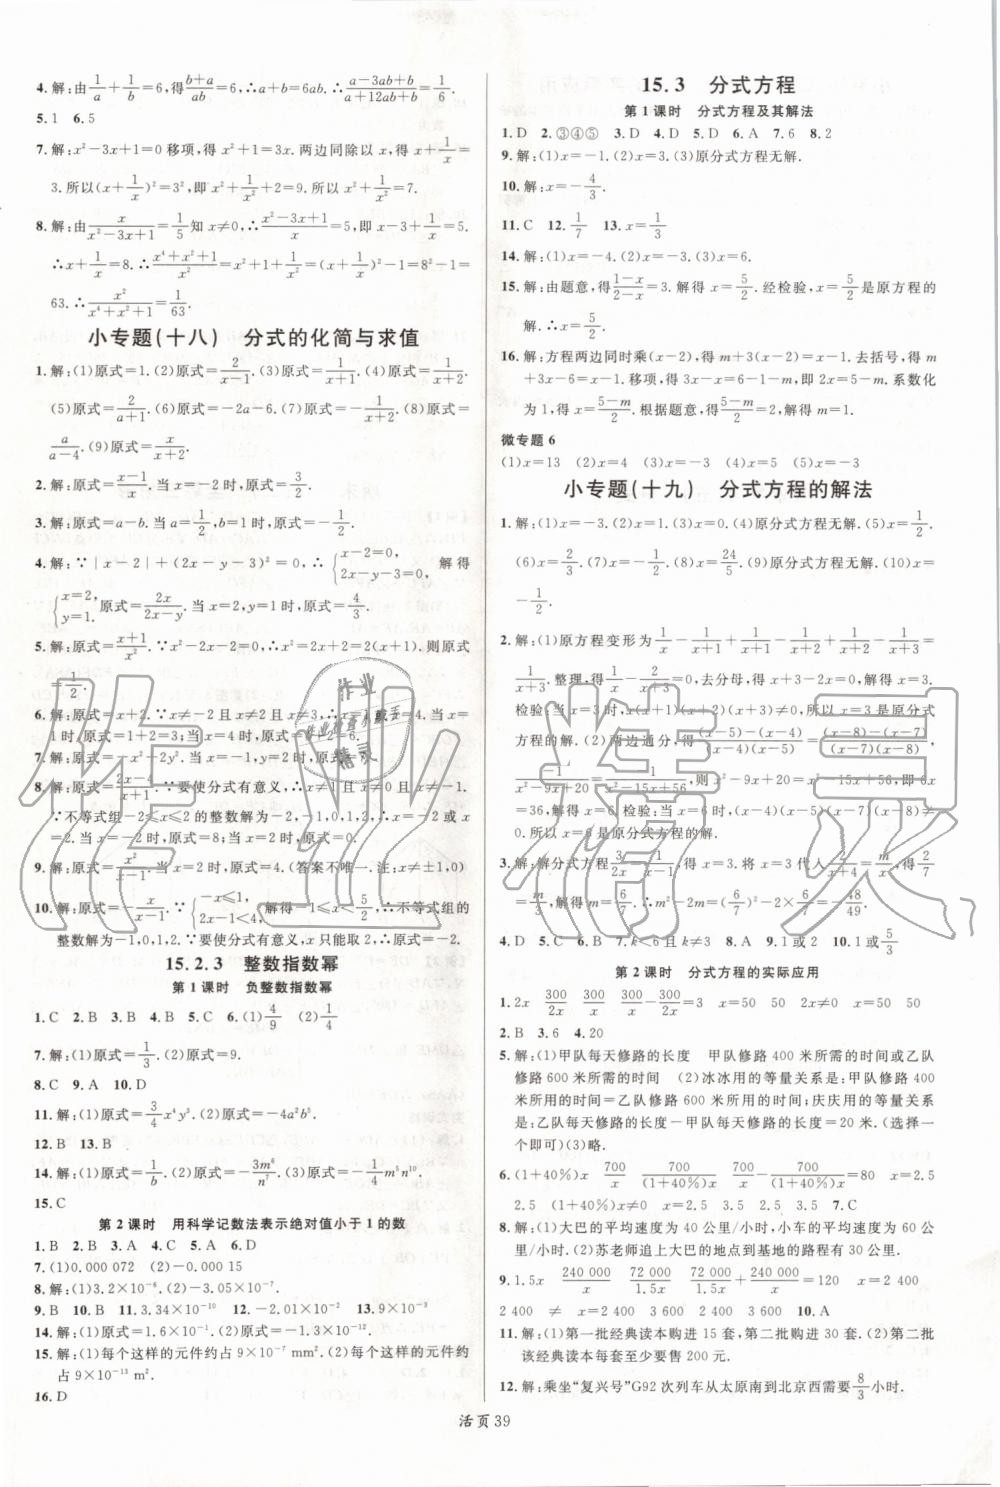 4.解:由1/a+1/b=6,得(b+a)/ab=6,∴a+b=6ab.∴(a-3ab+b)/(a+12ab+b)=1/6.
5.1 6.5
7.解:x²-3x+1=0移项,得x²+1=3x.两边同除以x,得x+1/x=
3.所以(x+1/x)²=3²,即x²+1/x²+2=9.所以x²+1/x²=7.
8.解:由x/(x²-3x+1)=1/5知x≠0,∴(x²-3x+1)/x=5,即x-3+1/x=5.
∴x+1/x=8.∴(x⁴+x²+1)/x²=x²+1/x²+1=(x+1/x)²-1=8²-1=
63.∴x²/(x⁴+x²+1)=1/63.
小专题(十八) 分式的化简与求值
1.解:(1)原式=1.(2)原式=2/(x-1).(3)原式=1/(x+1).(4)原式=x/(x+2).
(5)原式=2/(a+1).(6)原式=-2a-6.(7)原式=-1/(x+2).(8)原式=
a/(a-4).(9)原式=x/(x+2).
2.解:原式=(x-1)/x.当x=-2时,原式=3/2.
3.解:原式=a-b.当a=1/2,b=1时,原式=-1/2.
4.解:∵|x-2|+(2x-y-3)²=0,∴{x-2=0, 2x-y-3=0. 解得
{x=2, y=1. 原式=2x/(2x-y).当x=2,y=1时,原式=4/3.
5.解:原式=(x+1)/x².∵x²-2x-2=0;∴x²=2x+2=2(x+1).则原式
=1/2.
6.解:原式=x+2.∵x≠-2且x≠2且x≠3,∴x=1或x=4.当x=
1时,原式=1+2=3;当x=4时,原式=4+2=6.
8.解:原式=(2x-4)/(x+1).∵要使分式有意义,∴x≠±1且x≠0且x≠-2.
∵不等式组-2≤x≤2的整数解为-2,-1,0,1,2,∴x=-2或x
=2.当x=-2时,原式=8;当x=2时,原式=0.
10.解:原式=x/(x-1).∵{-x≤1, 2x-1<4, 解得-1≤x≤5/2,∴不等式组的
整数解为-1,0,1,2.∵要使分式有意义,x只能取2,∴原式=-2.
15.2.3 整数指数幂
第1课时 负整数指数幂
1.C 2.B 3.B 4.B 5.C 6.(1)4/9 (2)1/4
7.解:(1)原式=1/3.(2)原式=9.
8.C 9.A 10.D
11.解:(1)原式=3/4x⁴y³.(2)原式=-4a²b⁵.
12.B 13.B
14.解:(1)原式=1/b.(2)原式=-3m⁶/n⁷.(3)原式=-1/4m⁵n¹⁰.
15.C
第2课时 用科学记数法表示绝对值小于1的数
1.B 2.B 3.D 4.A 5.A 6.D
7.(1)0.000 072 (2)-0.000 15
8.解:(1)3.2×10⁻⁶.(2)-3.05×10⁻⁷.
9.B 10.B 11.3.34×10⁻¹⁰ 12.-2.01×10⁻² 13.9×10⁻³
14.解:(1)原式=1.6×10⁻¹.(2)原式=1.3×10⁻¹².
15.解:(1)每个这样的元件约占9×10⁻⁷ mm².(2)每个这样的元件约
占9×10⁻¹³ m².
16.D
15.3 分式方程
第1课时 分式方程及其解法
1.D 2.③④⑤ 3.D 4.D 5.D 6.A 7.6 8.2
9.解:(1)x=-1.(2)x=4.(3)原分式方程无解.
10.解:x=-4/3.
11.C 12.1/7 13.x=1/3
14.解:(1)x=-4.(2)x=3.(3)x=6.
15.解:由题意,得(1-x)/(2-x)=3.解得x=5/2.经检验,x=5/2是原方程的
解.∴x=5/2.
16.解:方程两边同时乘(x-2),得m+3(x-2)=x-1.去括号,得m
+3x-6=x-1.移项,得3x-x=6-m-1,即2x=5-m.系数化
为1,得x=(5-m)/2.根据题意,得(5-m)/2=2,解得m=1.
微专题6
(1)x=13 (2)x=4 (3)x=-3 (4)x=5 (5)x=-3
小专题(十九) 分式方程的解法
1.解:(1)x=-5.(2)x=1.(3)x=0.(4)原分式方程无解.(5)x=1/2.
(6)x=2/3.(7)x=-1/2.(8)x=4.(9)原分式方程无解.(10)x=-
1/2.
2.解:(1)原方程变形为1/x-1/(x+1)+1/(x+1)-1/(x+2)+1/(x+2)-1/(x+3)=
1/(x+3).整理,得1/x-2/(x+3)=0,去分母,得x+3-2x=0,解得x=3.
检验:当x=3时,x(x+1)(x+2)(x+3)≠0,所以x=3是原分式
方程的解.(2)方程两边分别通分,得((x-5)-(x-4))/((x-4)(x-5))=((x-8)-(x-7))/((x-7)(x-8)),即
则x²-9x+20=x²-15x+56,即6x
=36,解得x=6.检验:当x=6时,(x-4)(x-5)(x-7)(x-8)≠
0.所以x=6是原分式方程的解.
4.D 5.C 6.B 7.k<6且k≠3 8.A 9.1或2 10.1或5/3
第2课时 分式方程的实际应用
1.2x 300/2x 300/x-300/2x=3 x=50 50 2x≠0 x=50 50
2.B 3.6 4.20
5.解:(1)甲队每天修路的长度 甲队修路400米所需的时间或乙队
修路600米所需的时间 (2)冰冰用的等量关系是:甲队修路400
米所用的时间=乙队修路600米所用的时间;庆庆用的等量关系
是:乙队每天修路的长度-甲队每天修路的长度=20米.(选择一
个即可)(3)略.
6.(1+40%)x 700/x 700/((1+40%)x) 700/x-700/((1+40%)x)=80 x=2.5
2.5 (1+40%)x=3.5 2.5 3.5 7.C
8.解:(1)大巴的平均速度为40公里/小时,小车的平均速度为60
公里/小时.(2)苏老师追上大巴的地点到基地的路程有30公里.
9.1.5x 240 000/x 72 000/1.5x 72 000/1.5x+240 000/x=120 x=2 400
2 400 ≠ x=2 400 2 400 3 600 10.A
11.解:(1)第一批经典读本购进15套,第二批购进30套.(2)第二批
该经典读本每套至少要售200元.
12.解:乘坐“复兴号”G92次列车从太原南到北京西需要8/3小时.
活页39